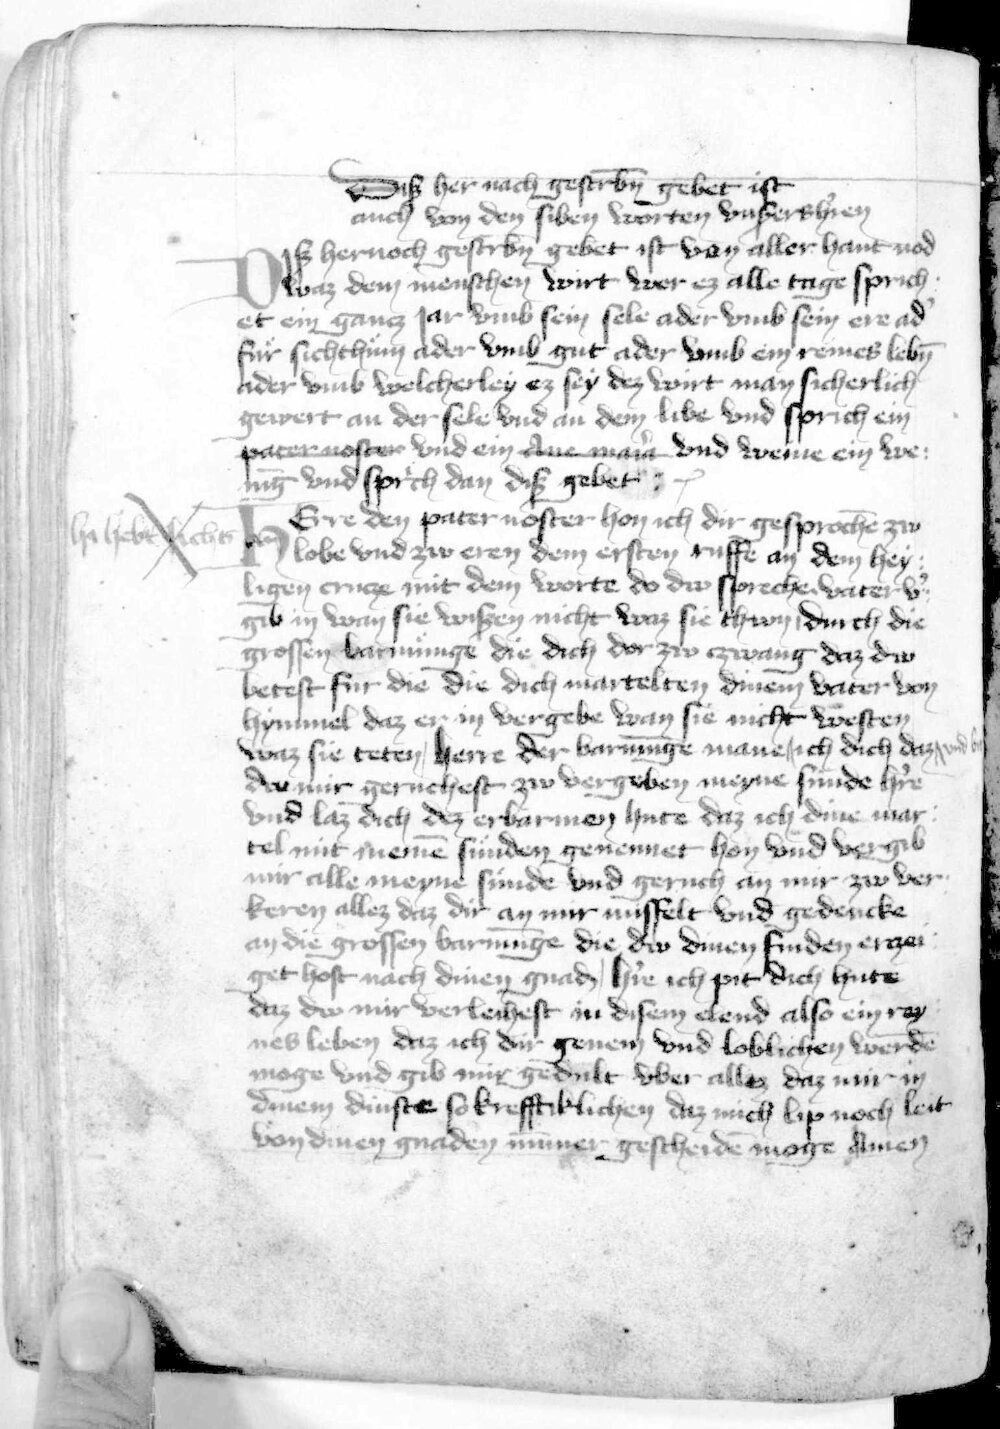 Diß her nach gescrbn̄ gebet ist
auch von den siben worten vnßers h'ren
Diß hernoch gescrbn̄ gebet ist von aller hant nod
waz dem menschen wirt wer ez alle tage sprich:
et ein gancz Jar vmb sein sele ader vmb sein ere ad'
für sichthům ader vmb gut ader vmb ein reines lebn̄
ader vmb welcherley ez sey dez wirt man sicherlich
gewert an der sele vnd an dem libe vnd sprich ein
pater noster vnd ein Aue maria vnd weine ein we:
nig vnd sprich dan diß gebet :
hi hebt sichs
HErre den pater noster hon ich dir gesproche zw
lobe vnd zw eren dem ersten ruffe an dem hey:
ligen cruze mit dem worte do dw spreche vater v':
gib in wan sie wißen nicht waz sie thwn durch die
grossen barmünge die dich dor zw czwang daz dw
betest fur die die dich martelten dinem vater von
hymmel daz er in vergebe wan sie nicht westen
waz sie teten herre der barmūge mane ich dich daz
dw mir geruchest zw vergeben meyne sünde h're
vnd laz dich dez erbarmen hute daz ich dine mar:
tel mit meinē sünden genennet hon vnd vergib
mir alle meyne sünde vnd geruch an mir zw ver:
keren allez daz dir an mir missfelt vnd gedencke
an die grossen barmūge die dw dinen finden erzei:
get host nach dinen gnadn h're ich pit dich hute
daz dw mir verleihest in disem elend also ein rey
nes leben daz ich dir genem vnd loblichen werde
moge vnd gib mir gedult vber allez daz mir in
dinem dinste so krefftiklichen daz mich lip noch leit
von dinen gnaden nimmer gescheidē moge Amen